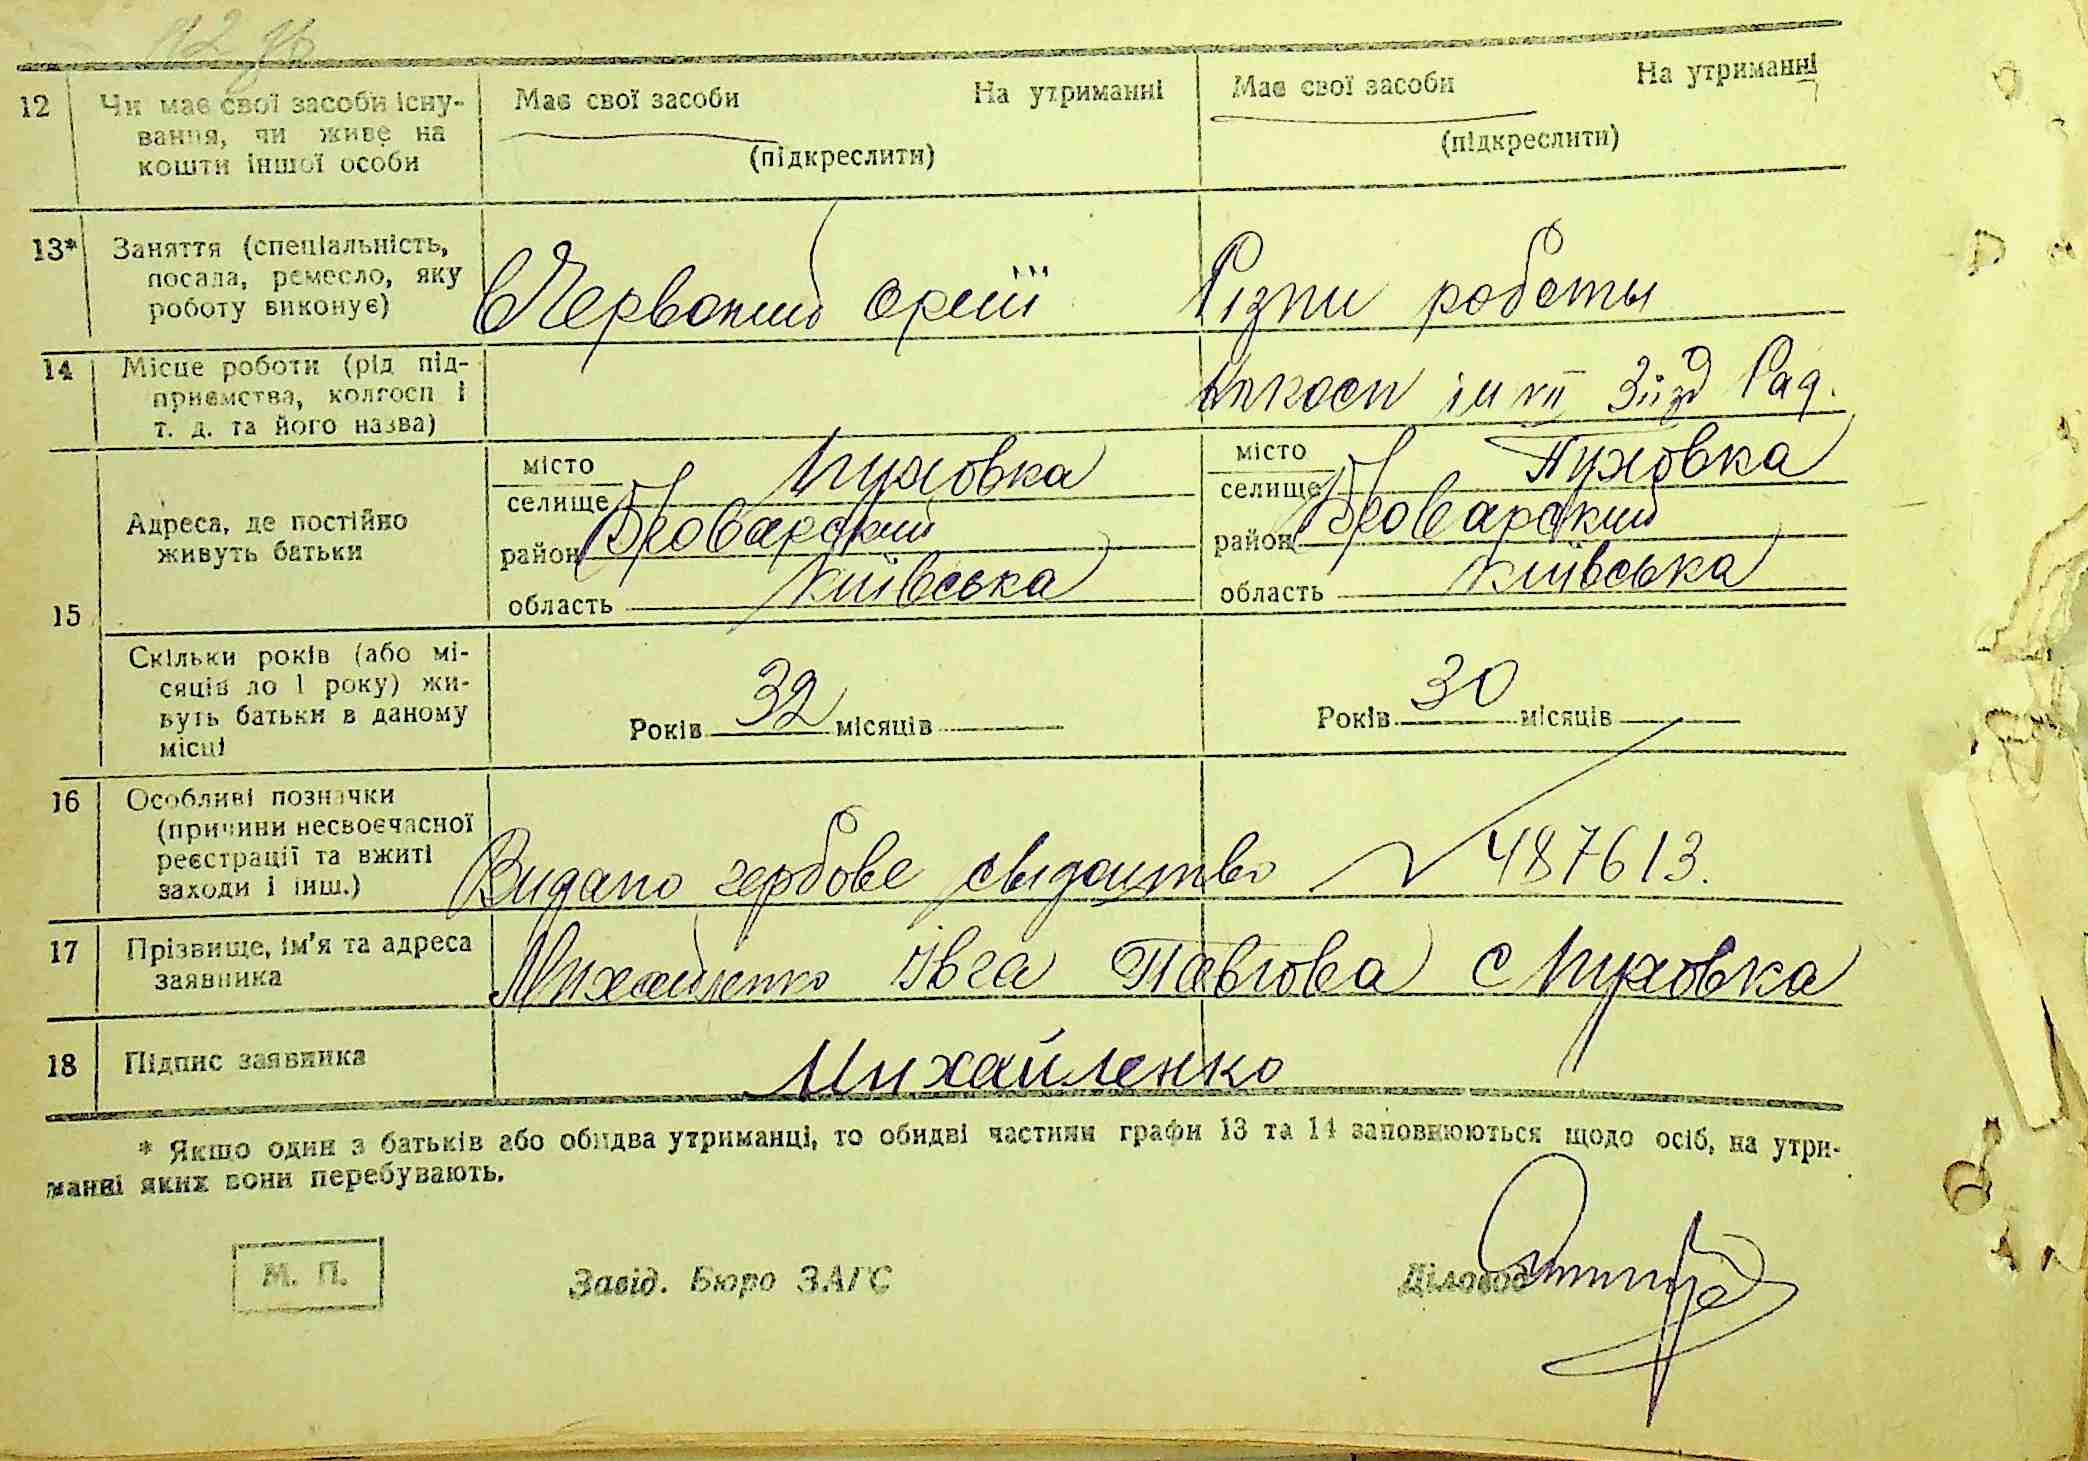 12 Чи має свої засоби існу- Має свої засоби На утриманні Має свої засоби На утриманні
вання, чи живе на
кошти іншої особи (підкреслити) (підкреслити)
13* Заняття (спеціальність,
посада, ремесло, яку
роботу виконує) Червоний Армії Різни роботы
14 Місце роботи (рід під-
приємства, колгосп і
т. д. та його назва) ім VII Зїзд Рад.
15 Адреса, де постійно
живуть батьки
місто Пуховка місто Пуховка
селище селище
район Броварский район Броварский
область Київська область Київська
Скільки років (або мі-
сяців до 1 року) жи-
вуть батьки в даному
місці
Років 32 місяців Років 30 місяців
16 Особливі позначки
(причини несвоєчасної
реєстрації та вжиті
заходи і інш.)
Видано гербове свідоцтво № 487613.
17 Прізвище, ім'я та адреса
заявника
Михайленко Івга Павлова с Пуховка
18 Підпис заявника Михайленко
* Якщо один з батьків або обидва утриманці, то обидві частини графи 13 та 14 заповнюються щодо осіб, на утри-
манні яких вони перебувають.
М. П. Завід. Бюро ЗАГС Діловод